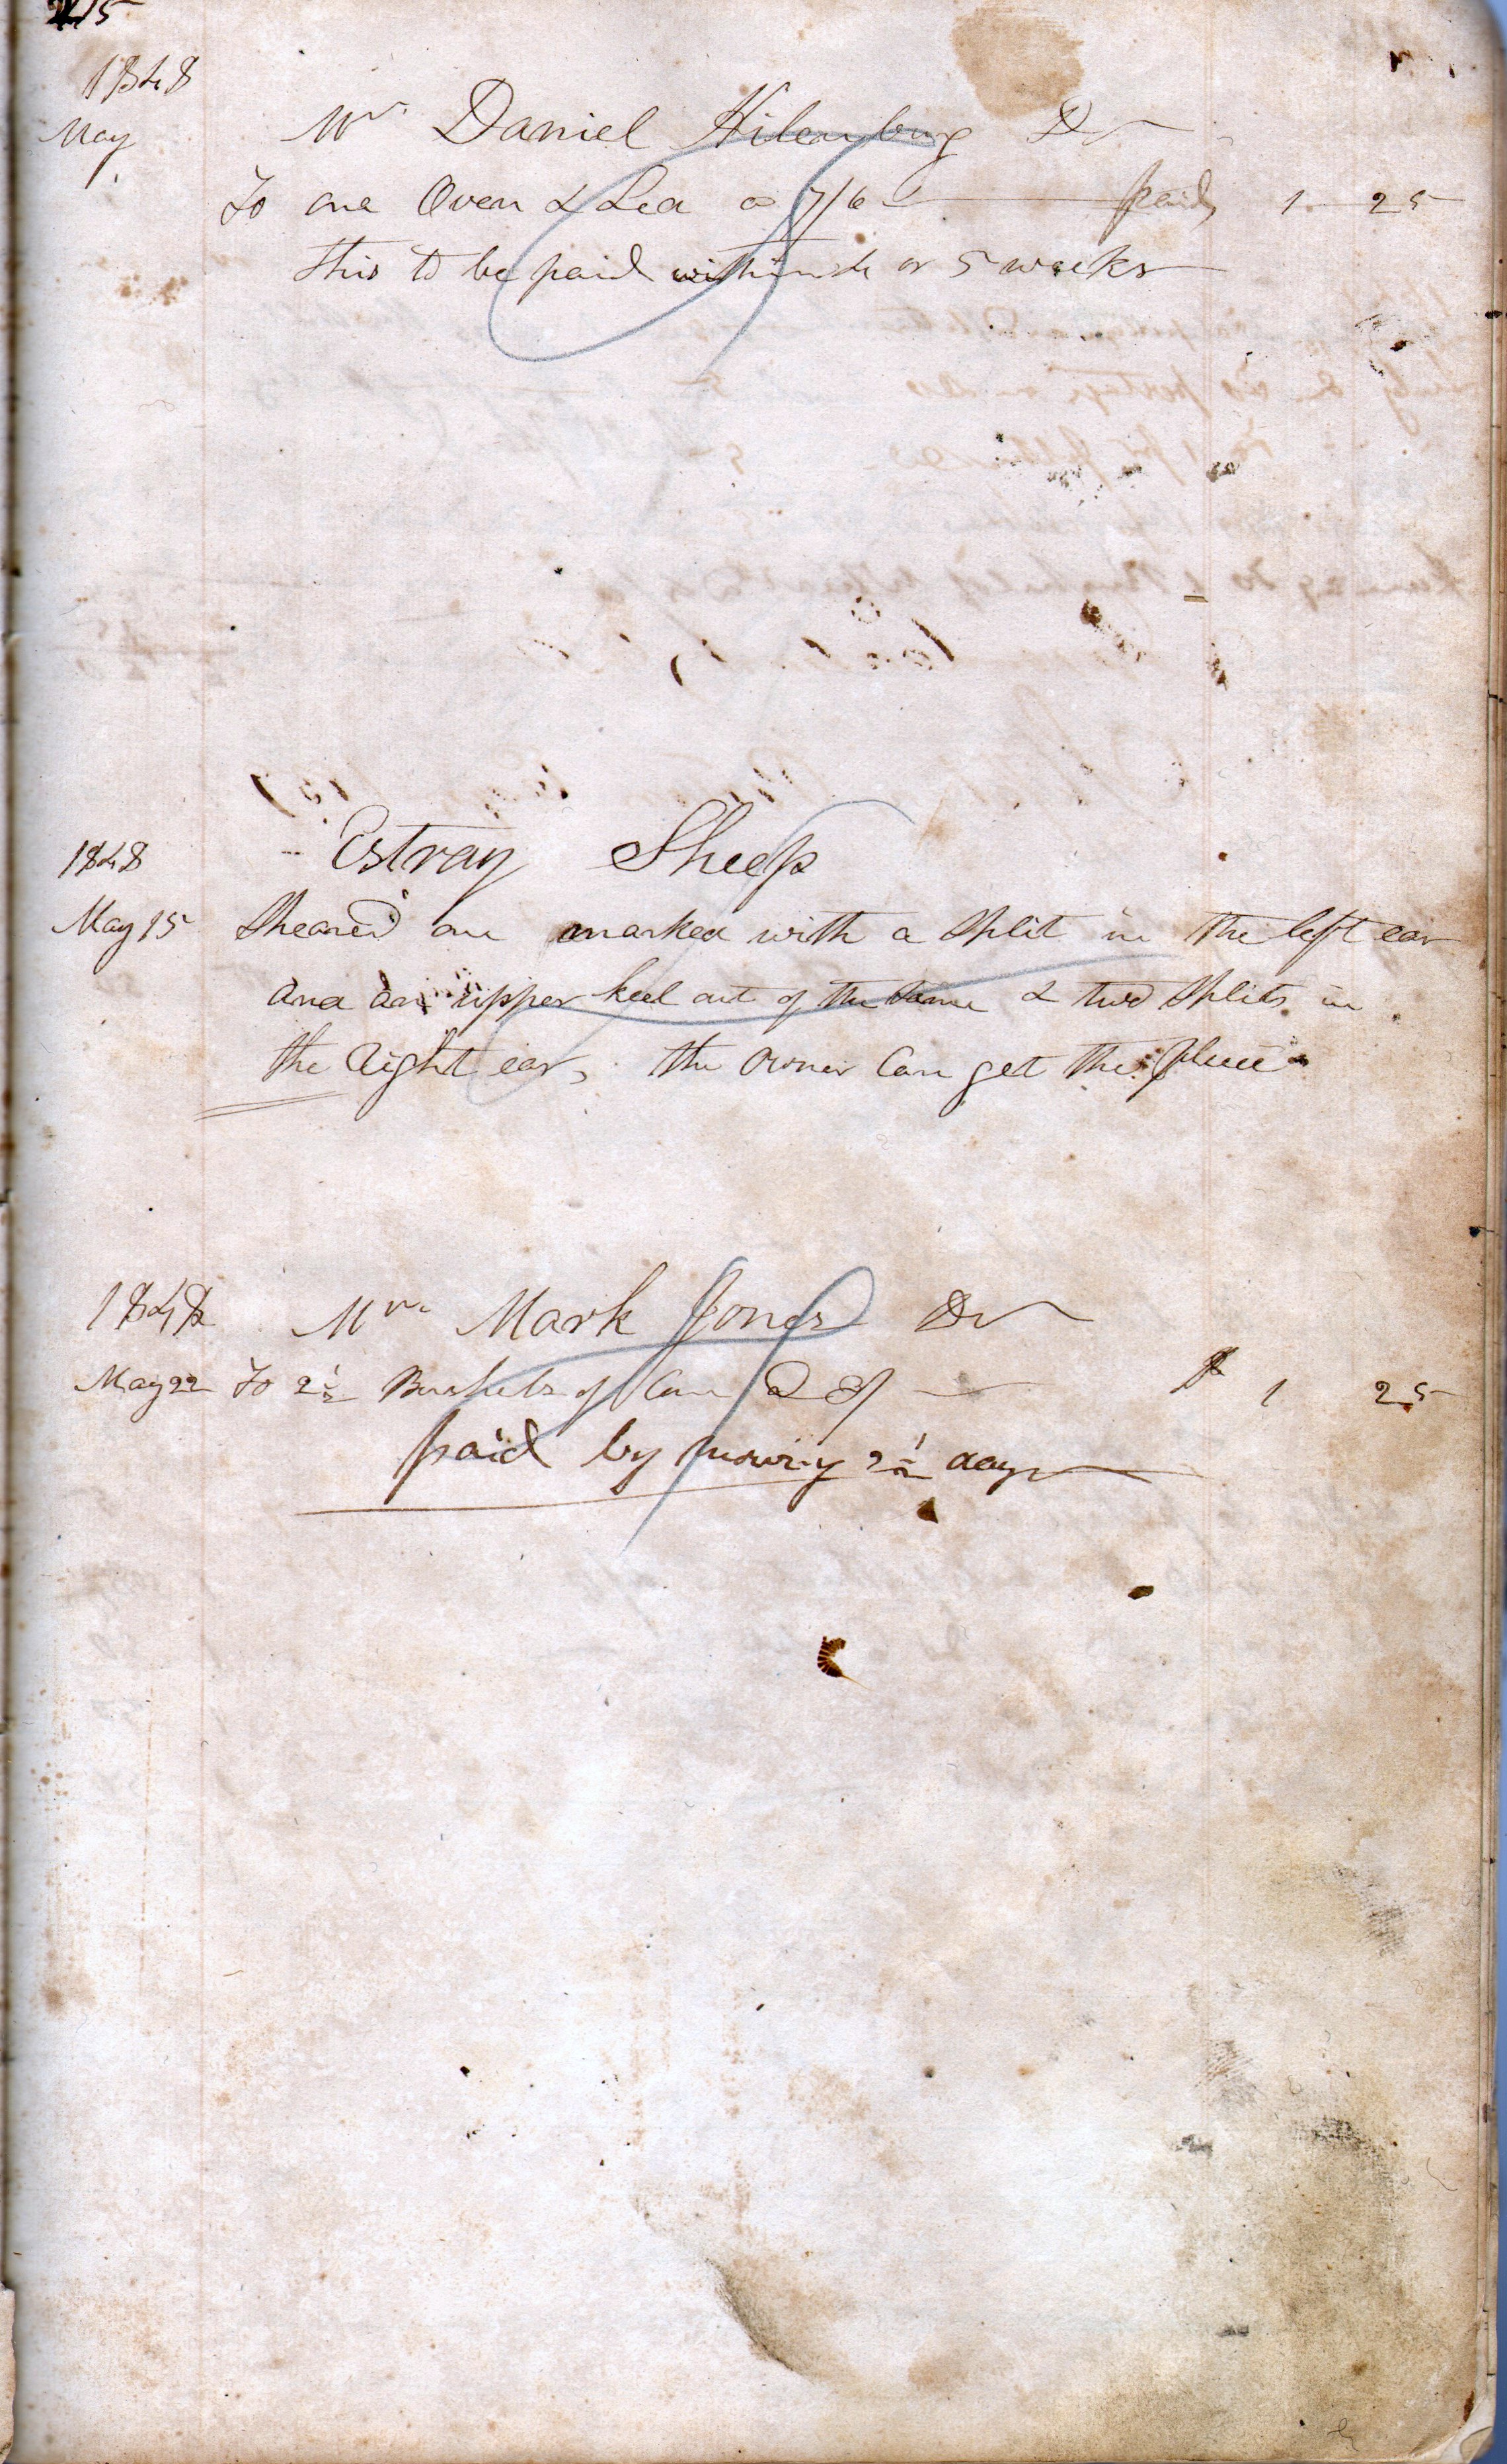 215
1848
May Mr. Daniel Hilenburg Dr
To one Oven & Led @ 7/6 paid 1 25
this to be paid within 4 or 5 weeks
Estray Sheep
1848
May 15 Sheared one marked with a Split in the left ear
and an upper keel out of the Same & two Splits in
the Right ear, the owner Can get the fleece
1848 Mr. Mark Jones Dr
May 22 To 2 1/2 Bushels of Corn @ 3/ $ 1 25
paid by mowing 2 1/2 days